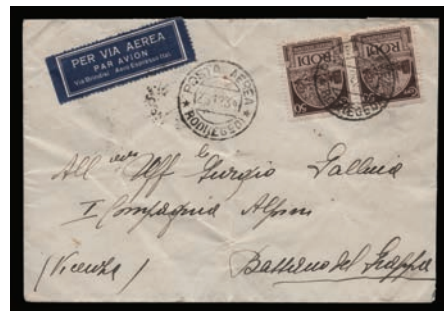 PER VIA AEREA
PAR AVION
Via Brindisi Aero Espresso Ital.
POSTA AEREA
RODI (EGEO)
RODI
50
RODI
50
All' Uff le Giorgio Gallina
I Compagnia Alpini
(Vicenza)
Bassano del Grappa